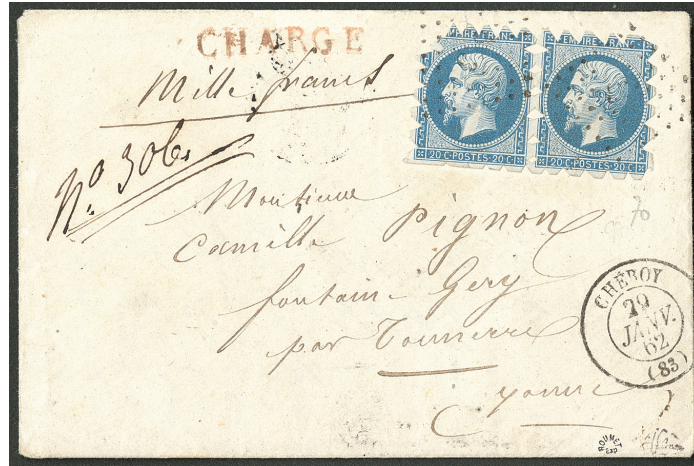 CHARGE
Mille francs
N° 306
EMPIRE FRANC
EMPIRE FRANC
20 C·POSTES·20 C
20 C·POSTES·20 C
Monsieur
Camille Pignon
fontaine Gery
par Tonnerre
Yonne
70
CHÉROY
29
JANV.
62
(83)
ROUMET
EXP